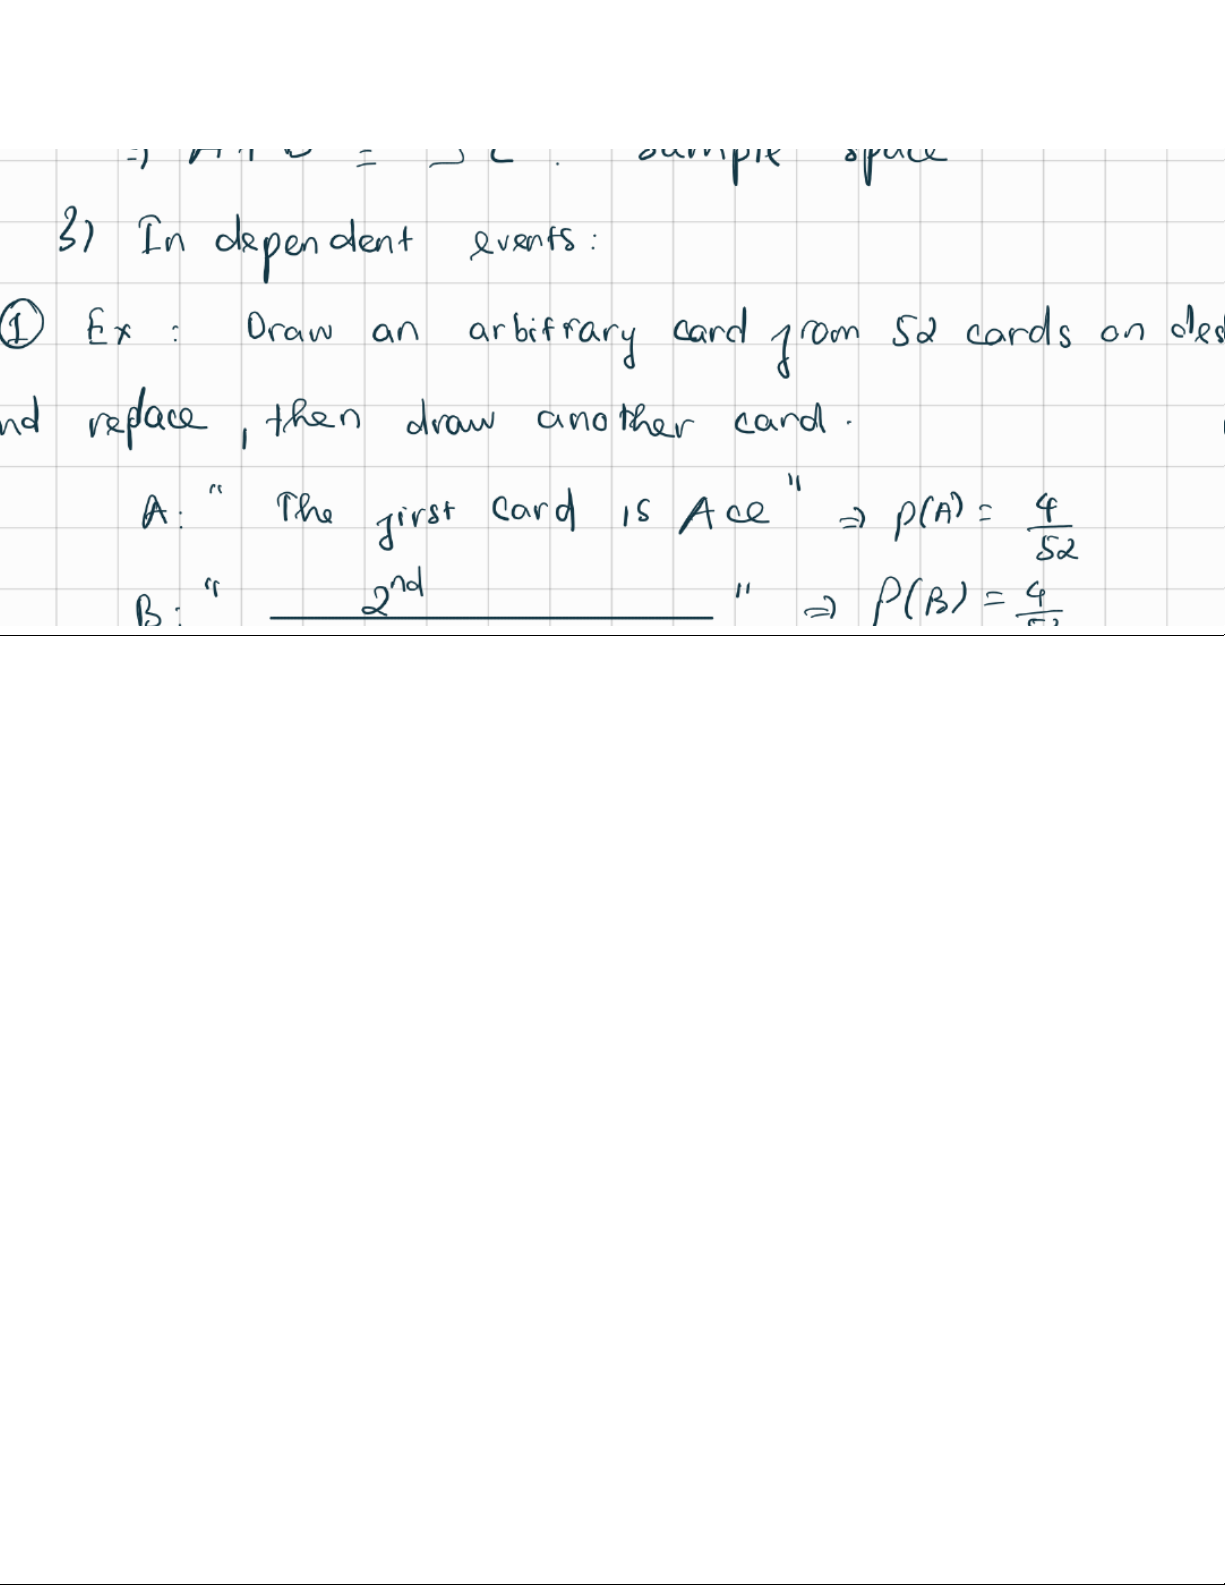 sample space
3) Independent events:
① Ex: Draw an arbitrary card from 52 cards on
replace, then draw another card.
A: " The first card is Ace " ⇒ P(A) = 4/52
B: " 2nd " ⇒ P(B) = 4